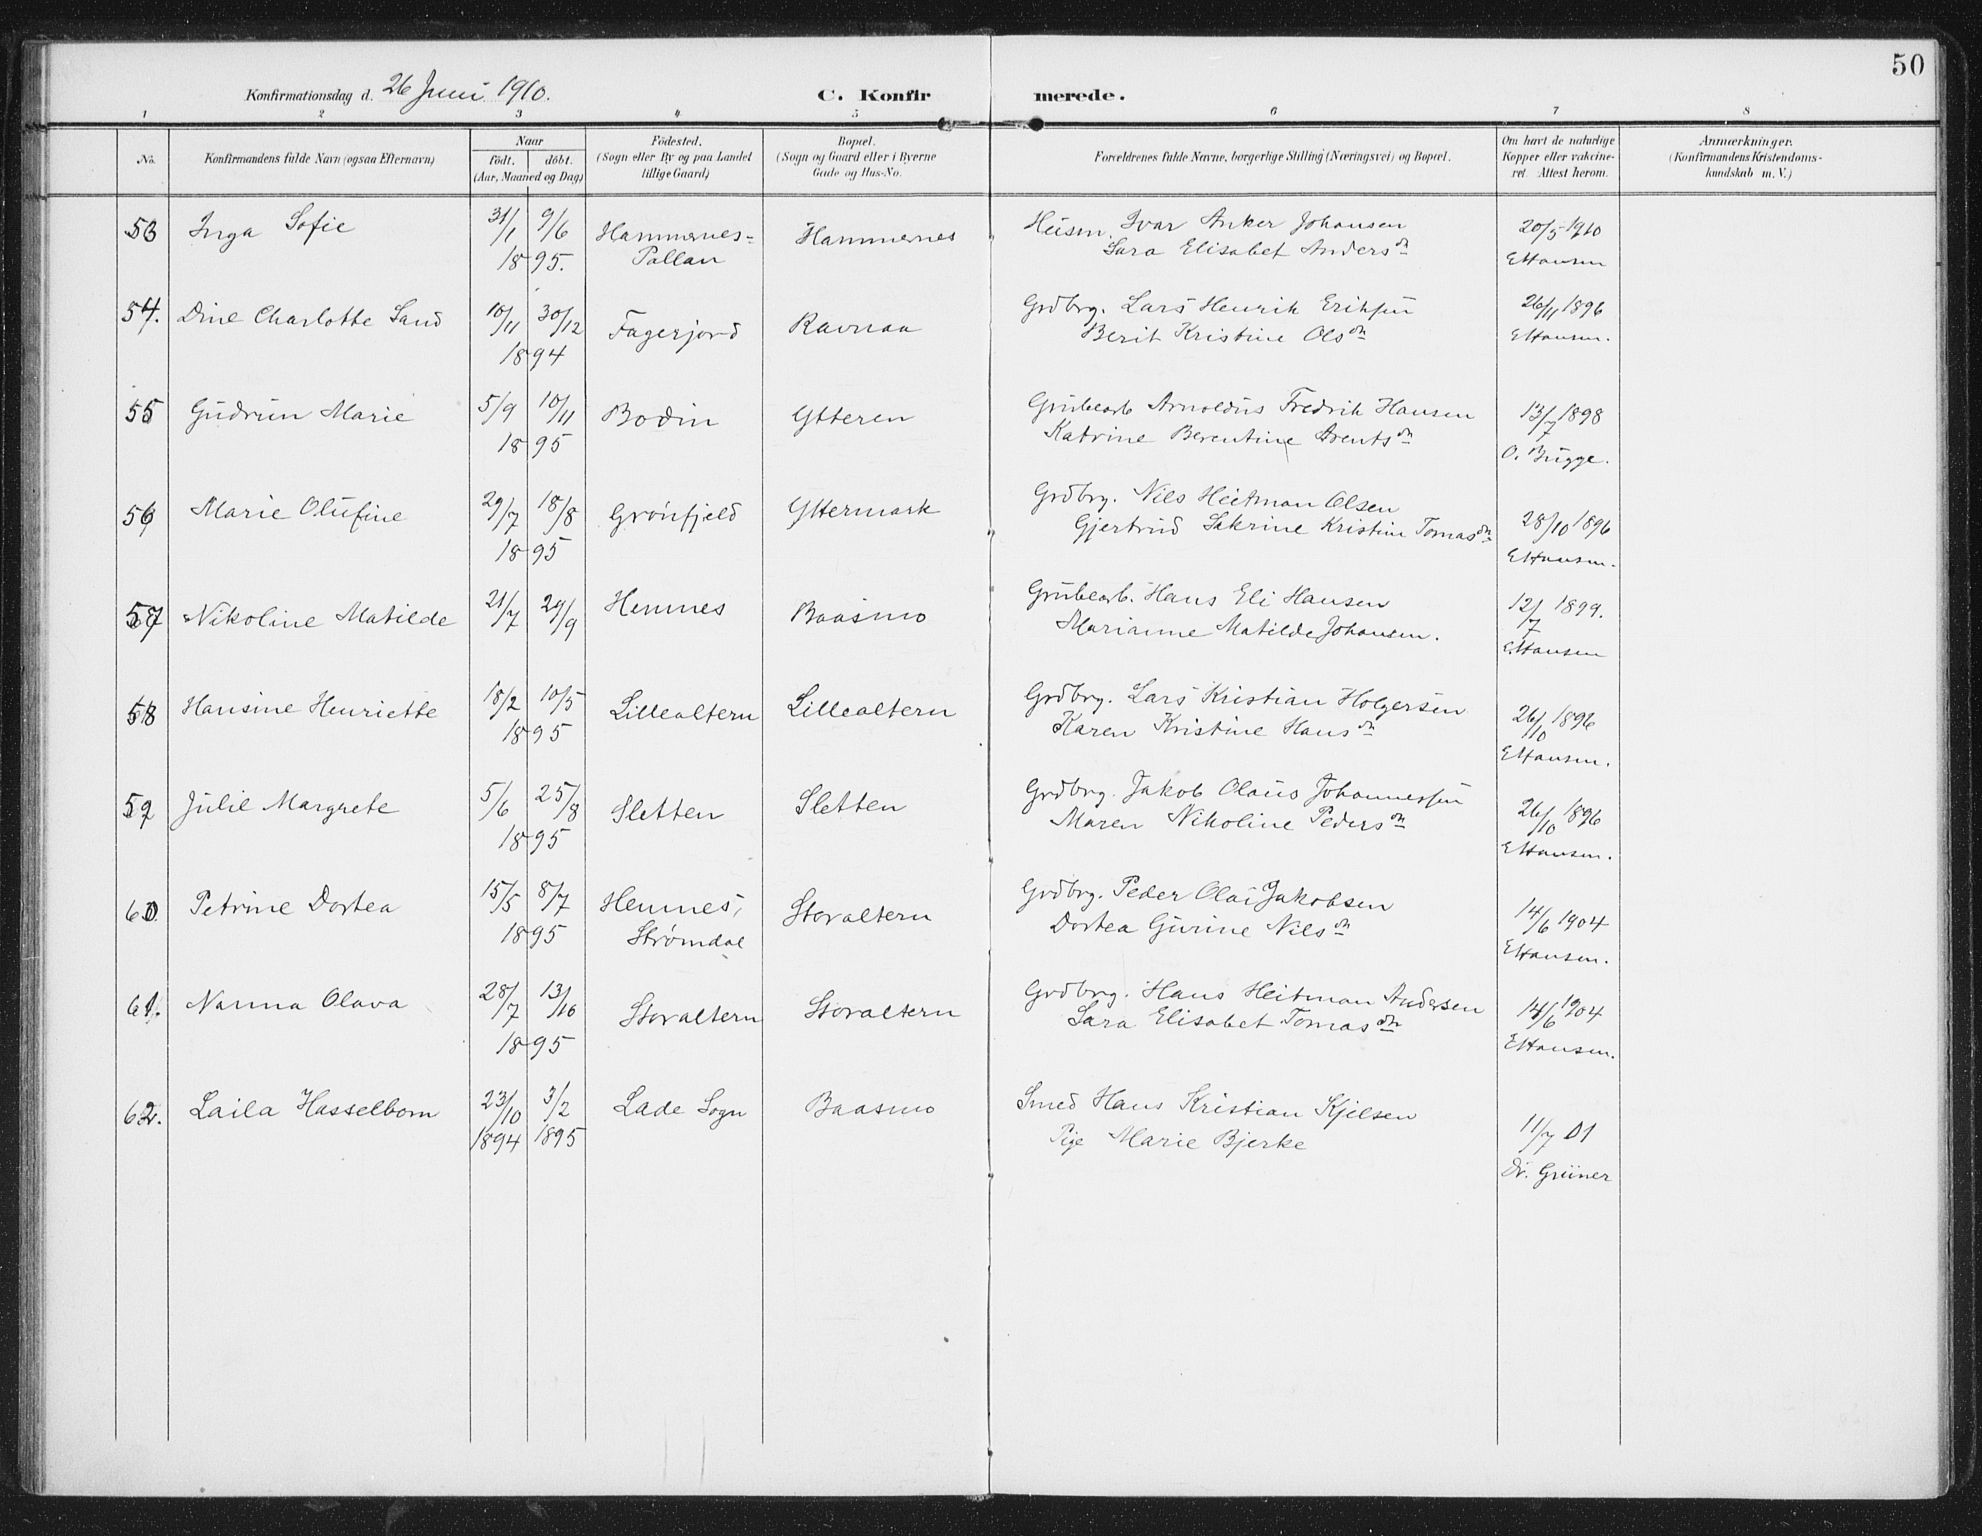 50
Konfirmationsdag d. 26 Juni 1910. C. Konfirmerede.
1 2 3 4 5 6 7 8
No. Konfirmandens fulde Navn (ogsaa Efternavn) Naar födt. döbt. (Aar, Maaned og Dag) Födested. (Sogn eller By og paa Landet tillige Gaard) Bopæl. (Sogn og Gaard eller i Byerne Gade og Hus-No. Forældrenes fulde Navne, borgerlige Stilling (Næringsvei) og Bopæl. Om havt de naturlige Kopper eller vakcineret. Attest herom. Anmærkninger. (Konfirmandens Kristendomskundskab m. V.)
53 Inga Sofie 31/1 9/6 Hammernes- Hammernes Husm. Ivar Anker Johansen 20/5 1910
1895. Pallan Sara Elisabet Andersdn EHansen
54. Dine Charlotte Sand 10/11 30/12 Fagerjord Ravnaa Grdbrg. Lars Henrik Eriksen 26/11 1896
1894 Berit Kristine Olsdn EHansen.
55 Gudrun Marie 5/9 10/11 Bodin Ytteren Grubearb Arnoldus Fredrik Hansen 13/7 1898
1895 Katrine Berentine Arentsdn O. Bugge.
56 Marie Olufine 29/7 18/8 Grönfjeld Yttermark Grdbrg. Nils Heitman Olsen 28/10 1896
1895 Gjertrud Sakrine Kristine Tomasdn EHansen.
57 Nikoline Matilde 21/7 29/9 Hemnes Baasmo Grubearb. Hans Eli Hansen 12/7 1899.
Marianne Matilde Johansen. EHansen
58 Hansine Henriette 18/2 10/5 Lillealtern Lillealtern Grdbrg. Lars Kristian Holgersen 26/10 1896
1895 Karen Kristine Hansdn EHansen.
59 Julie Margrete 5/6 25/8 Sletten Sletten Grdbrg. Jakob Olaus Johannessen 26/10 1896
1895 Maren Nikoline Pedersdn EHansen.
60 Petrine Dortea 15/5 8/7 Hemnes, Storaltern Grdbrg. Peder Olai Jakobsen 14/6 1904
1895 Strømdal Dortea Gurine Nilsdn EHansen.
61. Nanna Olava 28/7 13/10 Storaltern Storaltern Grdbrg. Hans Heitman Andersen 14/6 1904
1895 Sara Elisabet Tomasdn EHansen.
62. Laila Hasselbom 23/10 3/2 Lade Sogn Baasmo Smed Hans Kristian Kjelsen 11/7 01
1894 1895 Pige Marie Bjerke Dr. Grüner